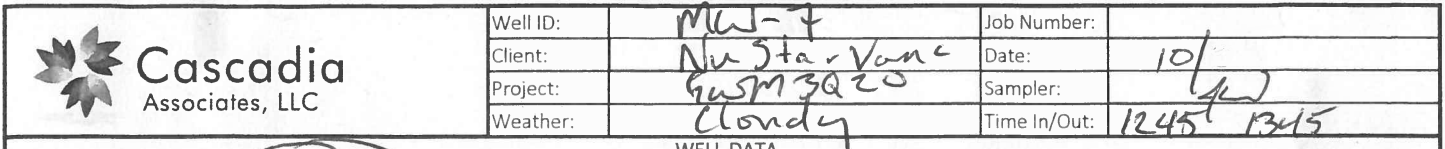 Cascadia
Associates, LLC
Well ID: MW-7 Job Number:
Client: NuStar Vanc Date: 10/
Project: GWM 3Q20 Sampler:
Weather: Cloudy Time In/Out: 1245 1345
WELL DATA